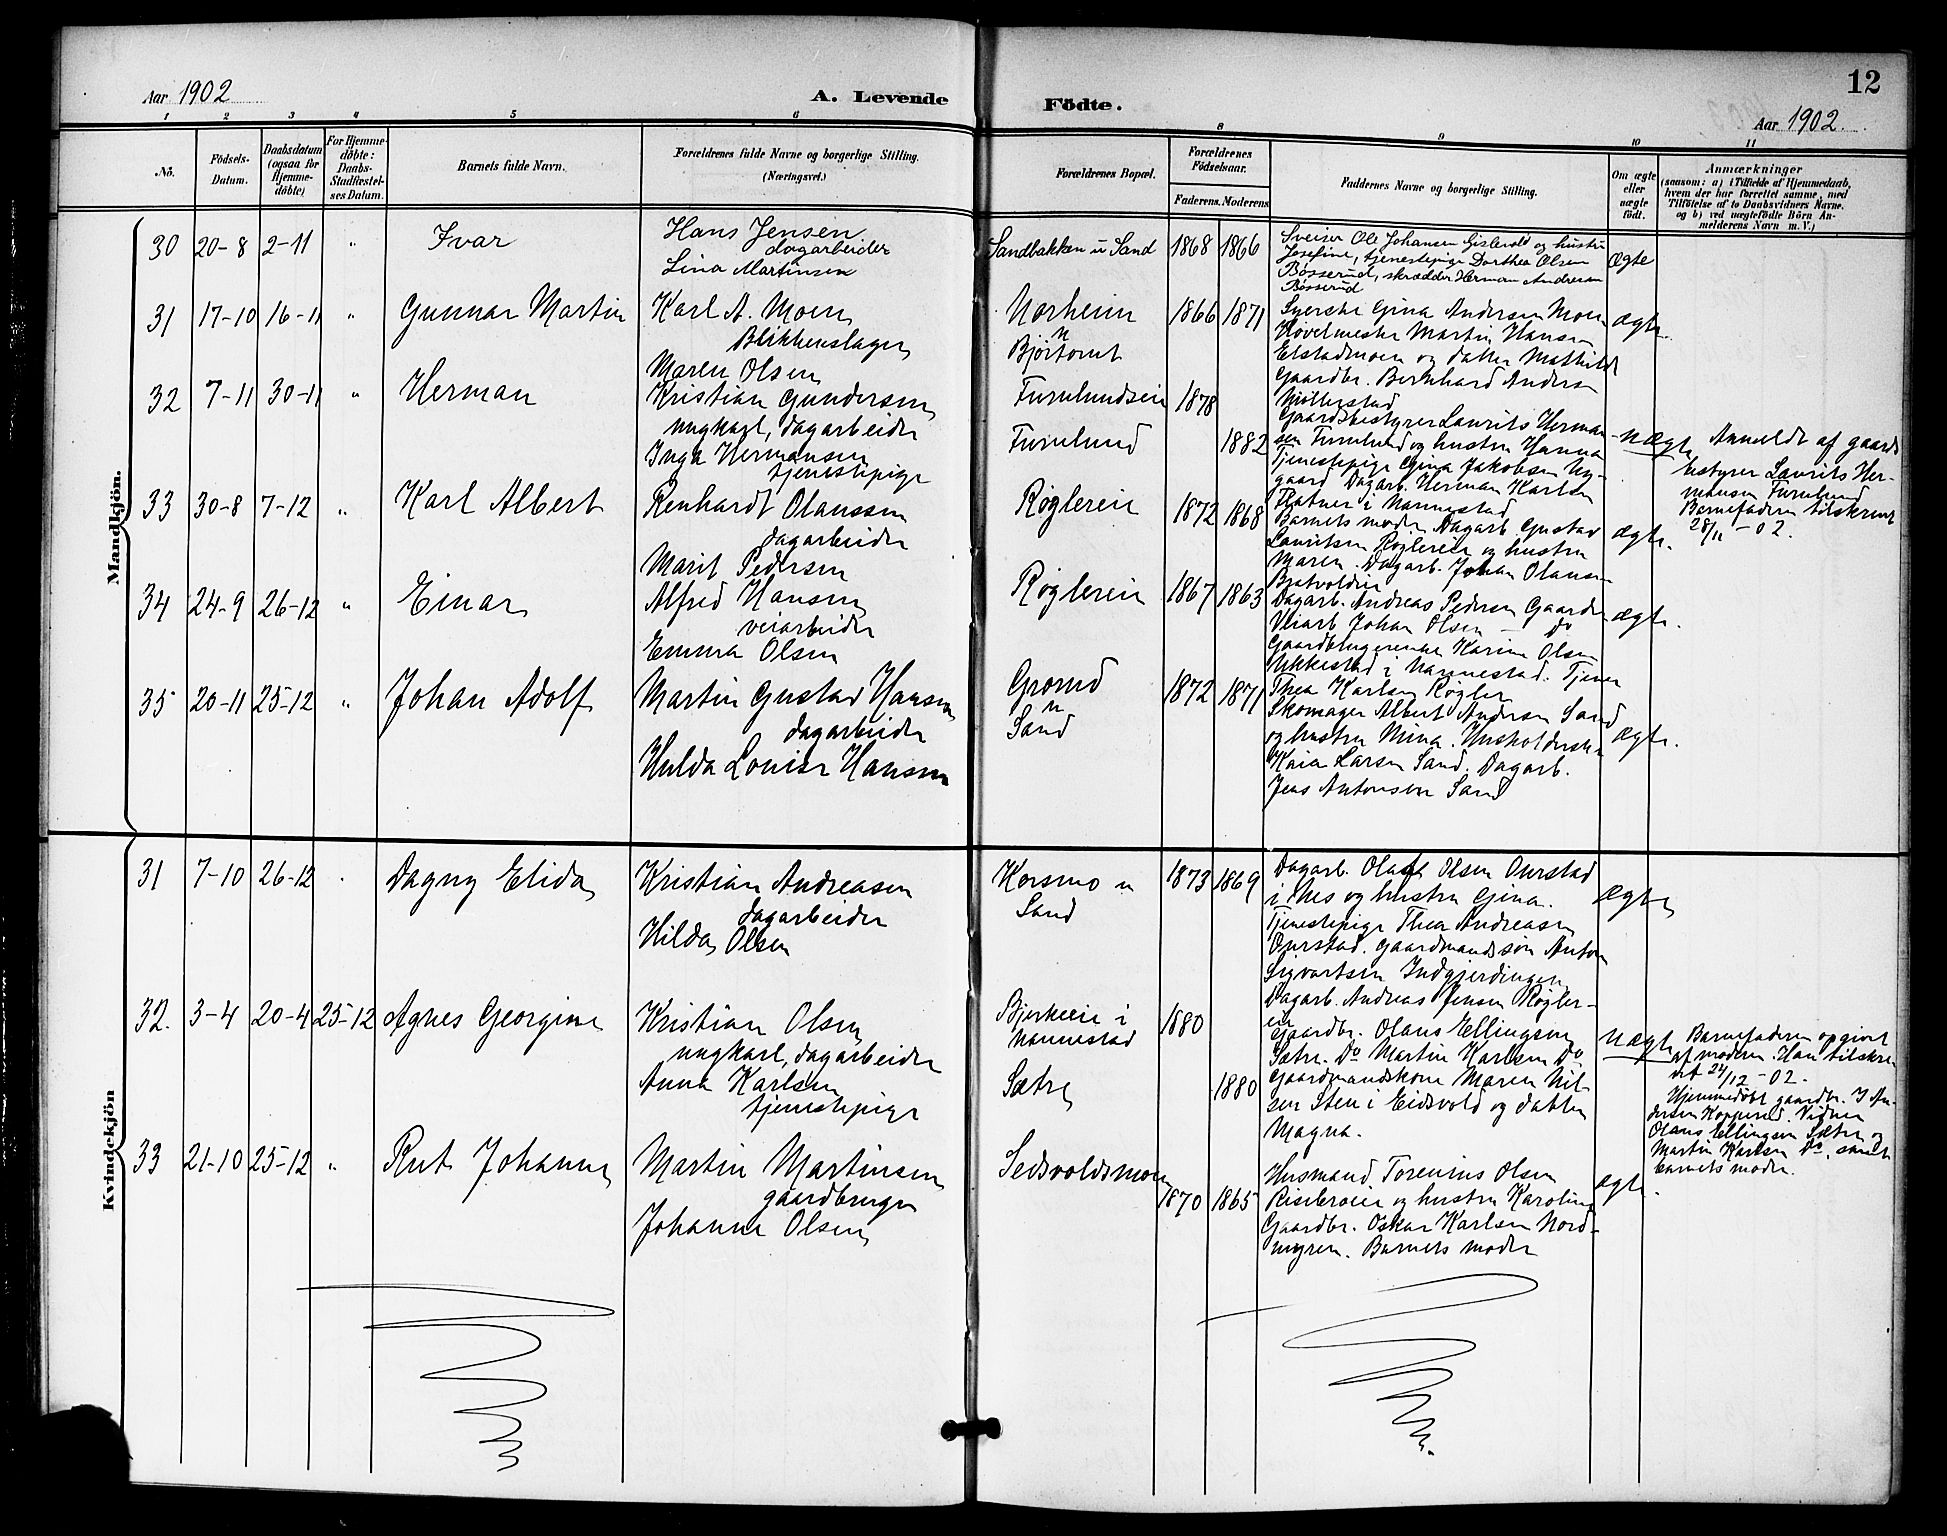 12
Aar 1902
A. Levende
Födte.
Aar 1902.
1 2 3 4 5 6
8 9 10 11
Nö.
Födsels-
Datum.
Daabsdatum
(ogsaa for
Hjemme-
döbte)
For Hjemme-
döbte:
Daabs-
Stadfæstel-
ses Datum.
Barnets fulde Navn.
Forældrenes fulde Navne og borgerlige Stilling.
(Næringsvei.)
Forældrenes Bopæl.
Forældrenes
Födselsaar.
Faderens. Moderens
Faddernes Navne og borgerlige Stilling.
Om ægte
eller
uægte
födt.
Anmærkninger
(saasom: a) i Tilfælde af Hjemmedaab,
hvem der har forrettet samme, med
Tilföielse af to Daabsvidners Navne.
og b) ved uægtefödte Börn An-
melderens Navn m. V.)
Mandkjön.
30 20-8 2-11 " Ivar
Hans Jensen
dagarbeider
Lina Martinsen
Sandbakken u Sand 1868 1866
Sveiser Ole Johansen Gislevold og hustru
Josefine, tjenestepige Dorthea Olsen
Bøsserud, skrædder Herman Andresen
Bøsserud
Ægte
31 17-10 16-11 " Gunnar Martin
Karl A. Moen
Blikkenslager
Maren Olsen
Norheim
u
Bjørtomt
1866 1871
Syerske Gina Andersen Moen
Høvelmester Martin Hansen
Elstadmoen og datter Mathilde
Gaardbr. Bernhard Andersen
Møllerstad
Ægte.
32 7-11 30-11 " Herman
Kristian Gundersen
ungkarl, dagarbeider
Inga Hermansen
tjenestepige
Furulundseie 1878
Furulund 1882
Gaardsbestyrer Laurits Herman-
sen Furulund og hustru Hanna
Tjenestepige Gina Jakobsen Ny-
gaard Dagarb. Herman Karlsen
i Nannestad
Barnets moder
uægte
Anmeldt af gaards
bestyrer Laurits Her-
mansen Furulund
Barnefaderen tilskrevet
28/11 - 02.
33 30-8 7-12 " Karl Albert
Renhardt Olaussen
dagarbeider
Marit Pedersen
Røglereie 1872 1868
Dagarb. Gustav
Lauritsen Røglereie og hustru
Maren. Dagarb. Johan Olausen
ægte.
34 24-9 26-12 " Einar
Alfred Hansen
veiarbeider
Emma Olsen
Røglereie 1867 1863
Dagarb. Andreas Pedersen Gaarder
Veiarb Johan Olsen - Do
Karine Olsen
Ukkestad i Nannestad. Tjener
Thea Karlsen Røgler
ægte.
35 20-11 25-12 " Johan Adolf
Martin Gustav Hansen
dagarbeider
Hulda Louise Hansen
Grorud
u
Sand
1872 1871
Skomager Albert Andersen Sand
og hustru Mina. Husholderske
Kaia Larsen Sand. Dagarb.
Jens Antonsen Sand
Ægte.
Kvindekjön
31 7-10 26-12 Dagny Elida
Kristian Andreasen
dagarbeider
Hilda Olsen
Korsmo u
Sand
1873 1869
Dagarb. Olaf Olsen Ourstad
i Nes og hustru Gina.
Tjenestepige Thea Andreasen
Ourstad. Gaardmandssøn Anton
Sigvartsen Indgjerdingen
Ægte
32. 3-4 20-4 25-12 Agnes Georgine
Kristian Olsen
ungkarl, dagarbeider
Anna Karlsen
tjenestepige
Bjerkeeie i
Nannestad
1880
Sætre 1880
Dagarb. Andreas Jensen Røgler-
eie
Gaardbr. Olaus Ellingsen
Sætre. Do Martin Karlsen Do
Gaardmandskone Maren Nil-
sen Sten i Eidsvold og datter
Magna.
uægte
Barnefaderen opgivet
af moderen. Han tilskre-
vet 24/12 - 02.
Hjemmedøbt gaardbr. J An-
dersen Kopperud. Vidner
Olaus Ellingsen Sætre og
Martin Karlsen Do, samt
barnets moder.
33 21-10 25-12 " Rut Johanne
Martin Martinsen
gaardbruger
Johanne Olsen
Sedsvoldsmoen
1870 1865
Husmand Torenius Olsen
Risebroeie og hustru Karoline
Gaardbr. Oskar Karlsen Nord-
myren. Barnets moder
ægte.